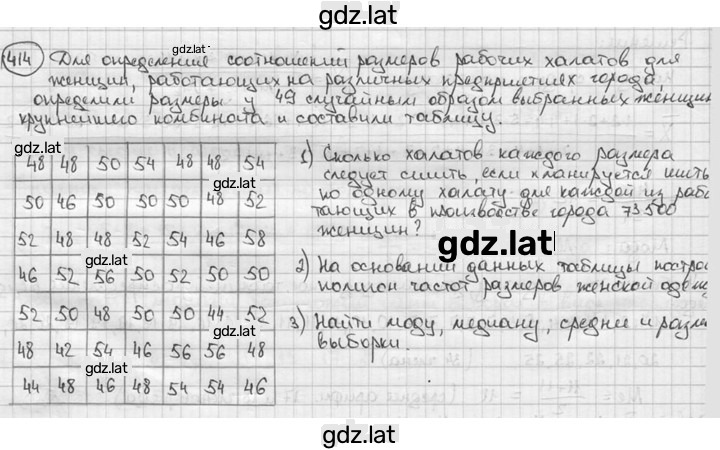 gdz.lat
414 Для определения соотношений размеров рабочих халатов для
gdz.lat
женщин, работающих на различных предприятиях города,
определили размеры у 49 случайным образом выбранных женщин
крупнейшего комбината и составили таблицу.
48 48 50 54 48 48 54
50 46 50 50 50 48 52
52 48 48 52 54 46 58
gdz.lat
46 52 56 50 52 50 50
52 50 48 50 50 44 52
48 42 54 46 56 56 48
gdz.lat
44 48 46 48 54 54 46
1) Сколько халатов каждого размера
следует сшить, если планируется шить
по одному халату для каждой из рабо
тающих в производстве города 73500
женщин?
gdz.lat
2) На основании данных таблицы постро
полигон частот размеров женской одеж
gdz.lat
3) Найти моду, медиану, среднее и разм
выборки.
gdz.lat